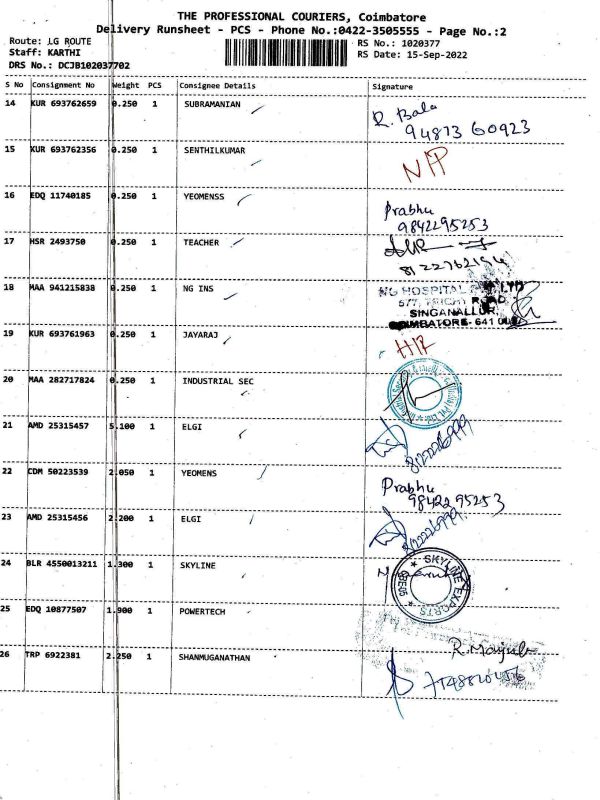 THE PROFESSIONAL COURIERS, Coimbatore
Delivery Runsheet - PCS - Phone No.:0422-3505555 - Page No.:2
Route: LG ROUTE
RS No.: 1020377
Staff: KARTHI
RS Date: 15-Sep-2022
DRS No.: DCJB102037702
S No Consignment No Weight PCS Consignee Details Signature
14 KUR 693762659 0.250 1 SUBRAMANIAN R. Bala
94873 60923
15 KUR 693762356 0.250 1 SENTHILKUMAR
16 EDQ 11740185 0.250 1 YEOMENSS Prabhu
9842295253
17 HSR 2493750 0.250 1 TEACHER
18 MAA 941215838 0.250 1 NG INS NG HOSPITAL
577, TRICHY ROAD
SINGANALLUR
COIMBATORE- 641
19 KUR 693761963 0.250 1 JAYARAJ
20 MAA 282717824 0.250 1 INDUSTRIAL SEC
21 AMD 25315457 5.100 1 ELGI
22 CDM 50223539 2.050 1 YEOMENS Prabhu
9842295253
23 AMD 25315456 2.200 1 ELGI
24 BLR 4550013211 1.300 1 SKYLINE SKYLINE EXPORTS
25 EDQ 10877507 1.900 1 POWERTECH
26 TRP 6922381 2.250 1 SHANMUGANATHAN